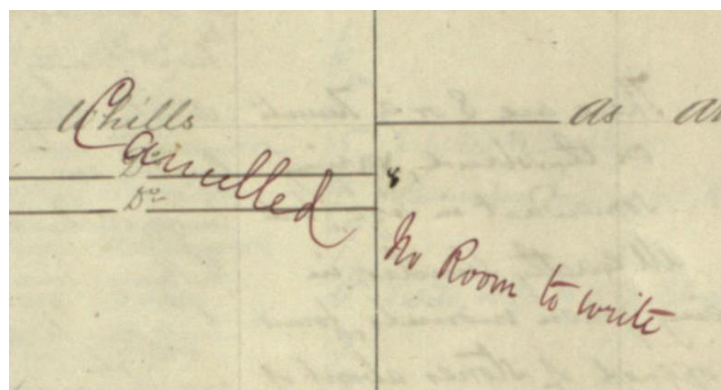 Whills
Cancelled
Do
Do
As
No Room to write